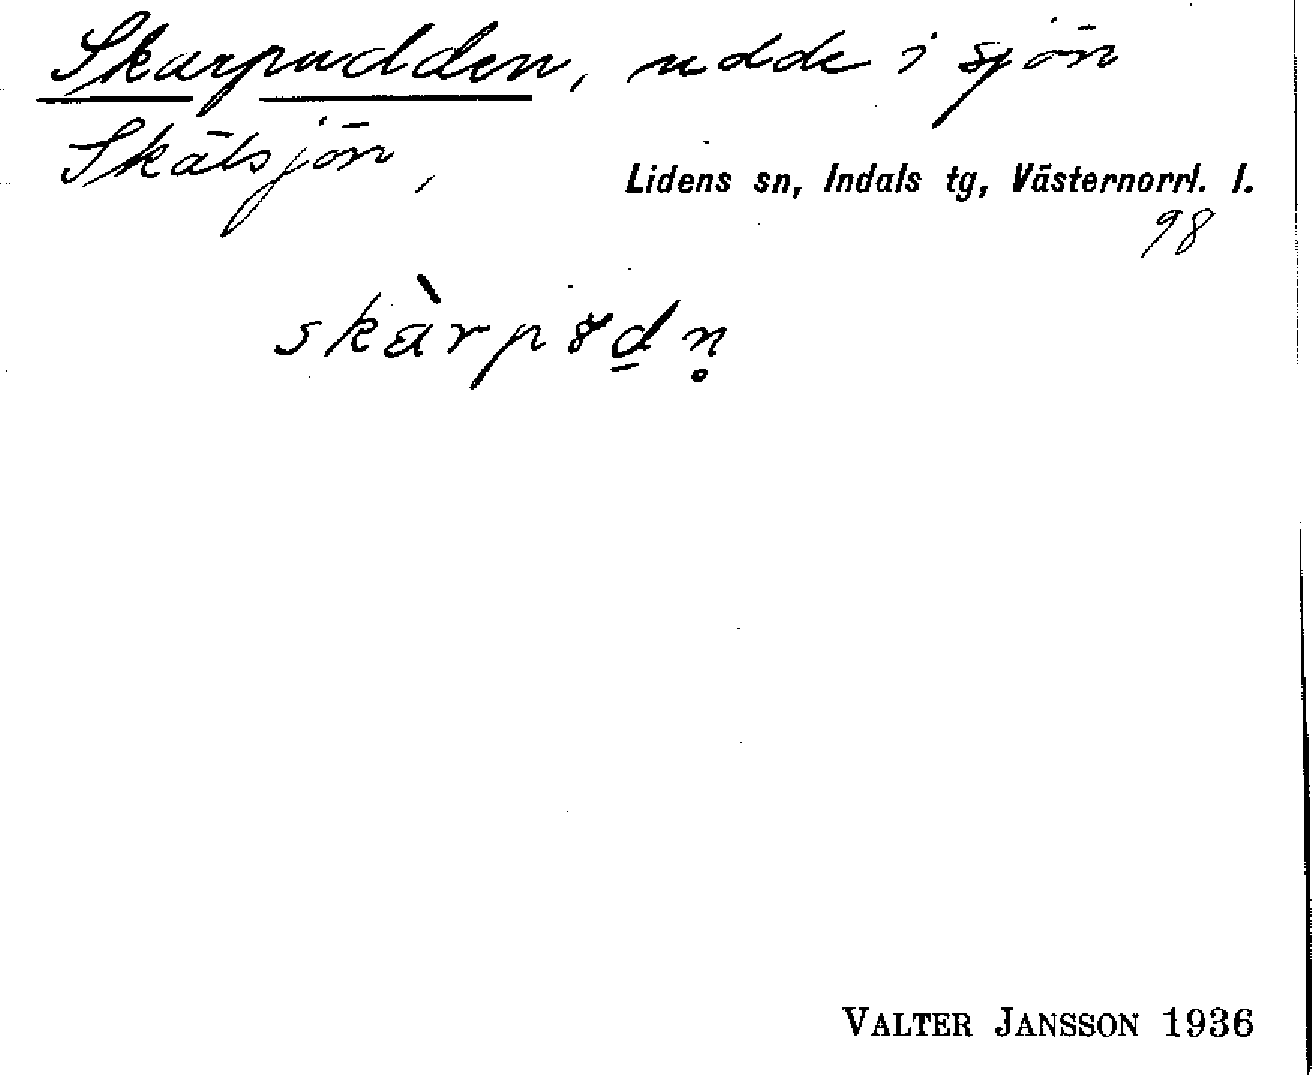 Skarpudden, udde i sjön
Skälsjön,
Lidens sn, Indals tg, Västernorrl. l.
98
skàrpɤd̠n̥
VALTER JANSSON 1936